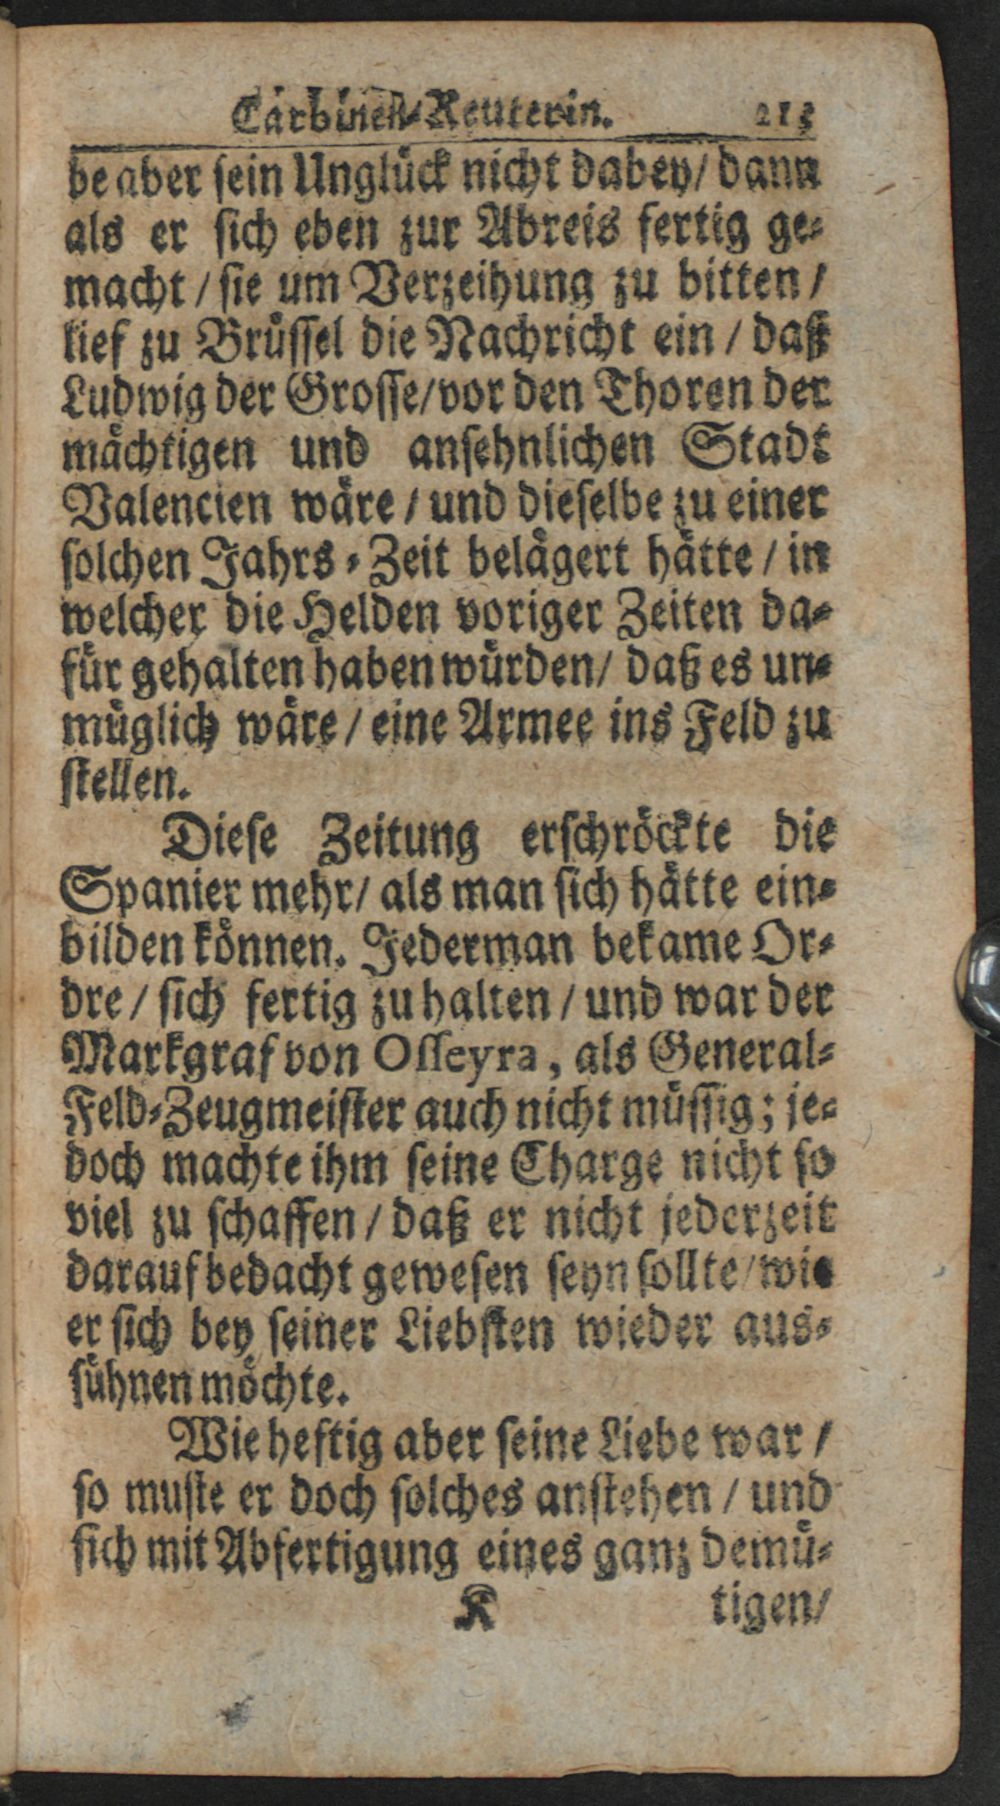 Carbinen-Reuterin. 213
be aber sein Unglück nicht dabey/ dann
als er sich eben zur Abreis fertig ge-
macht / sie um Verzeihung zu bitten /
lief zu Brüssel die Nachricht ein / daß
Ludwig der Grosse/vor den Thoren der
mächtigen und ansehnlichen Stadt
Valencien wäre / und dieselbe zu einer
solchen Jahrs-Zeit belägert hätte / in
welcher die Helden voriger Zeiten da-
für gehalten haben würden/ daß es un-
müglich wäre / eine Armee ins Feld zu
stellen.
Diese Zeitung erschröckte die
Spanier mehr/ als man sich hätte ein-
bilden können. Jederman bekame Or-
dre / sich fertig zu halten / und war der
Markgraf von Osseyra, als General-
Feld-Zeugmeister auch nicht müssig; je-
doch machte ihm seine Charge nicht so
viel zu schaffen / daß er nicht jederzeit
darauf bedacht gewesen seyn sollte/wie
er sich bey seiner Liebsten wieder aus-
sühnen möchte.
Wie heftig aber seine Liebe war /
so muste er doch solches anstehen / und
sich mit Abfertigung eines ganz demü-
K tigen/